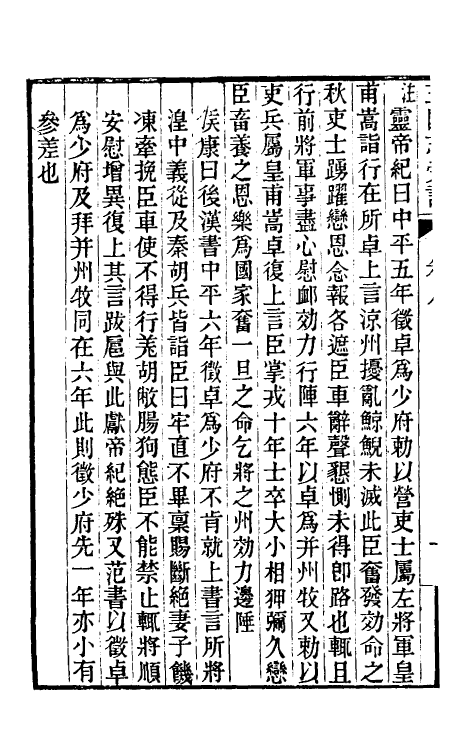 注靈帝紀曰中平五年徵卓爲少府勅以營吏士屬左將軍皇
甫嵩詣行在所卓上言涼州擾亂鯨鯢未滅此臣奮發効命之
秋吏士踴躍戀恩念報各遮臣車辭聲懇惻未得卽路也輒且
行前將軍事盡心慰卹効力行陣六年以卓爲并州牧又勅以
吏兵屬皇甫嵩卓復上言臣掌戎十年士卒大小相狎彌久戀
臣畜養之恩樂爲國家奮一旦之命乞將之州効力邊陲
侯康曰後漢書中平六年徵卓爲少府不肯就上書言所將
湟中義從及秦胡兵皆詣臣曰牢直不畢稟賜斷絕妻子饑
凍牽挽臣車使不得行羌胡敝腸狗態臣不能禁止輒將順
安慰增異復上其言跋扈與此獻帝紀絕殊又范書以徵卓
爲少府及拜并州牧同在六年此則徵少府先一年亦小有
參差也